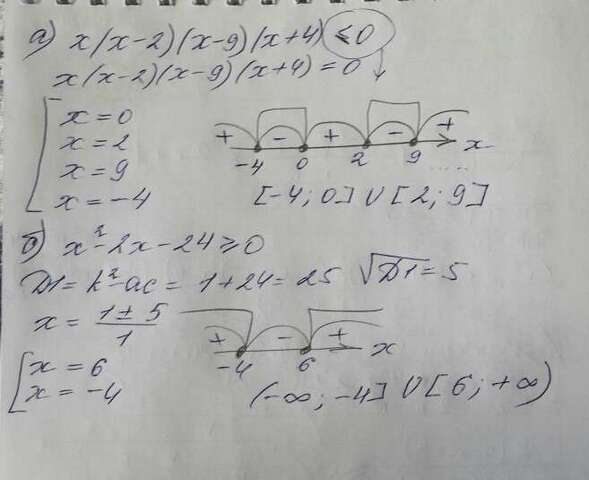 а) x(x-2)(x-9)(x+4) ≤ 0
x(x-2)(x-9)(x+4) = 0
x = 0
x = 2
x = 9
x = -4
+ - + - +
-4 0 2 9 x
[-4; 0] ∪ [2; 9]
б) x²-2x-24 ≥ 0
D1 = k²-ac = 1+24 = 25 √D1 = 5
x = (1 ± 5)/1
x = 6
x = -4
+ - +
-4 6 x
(-∞; -4] ∪ [6; +∞)